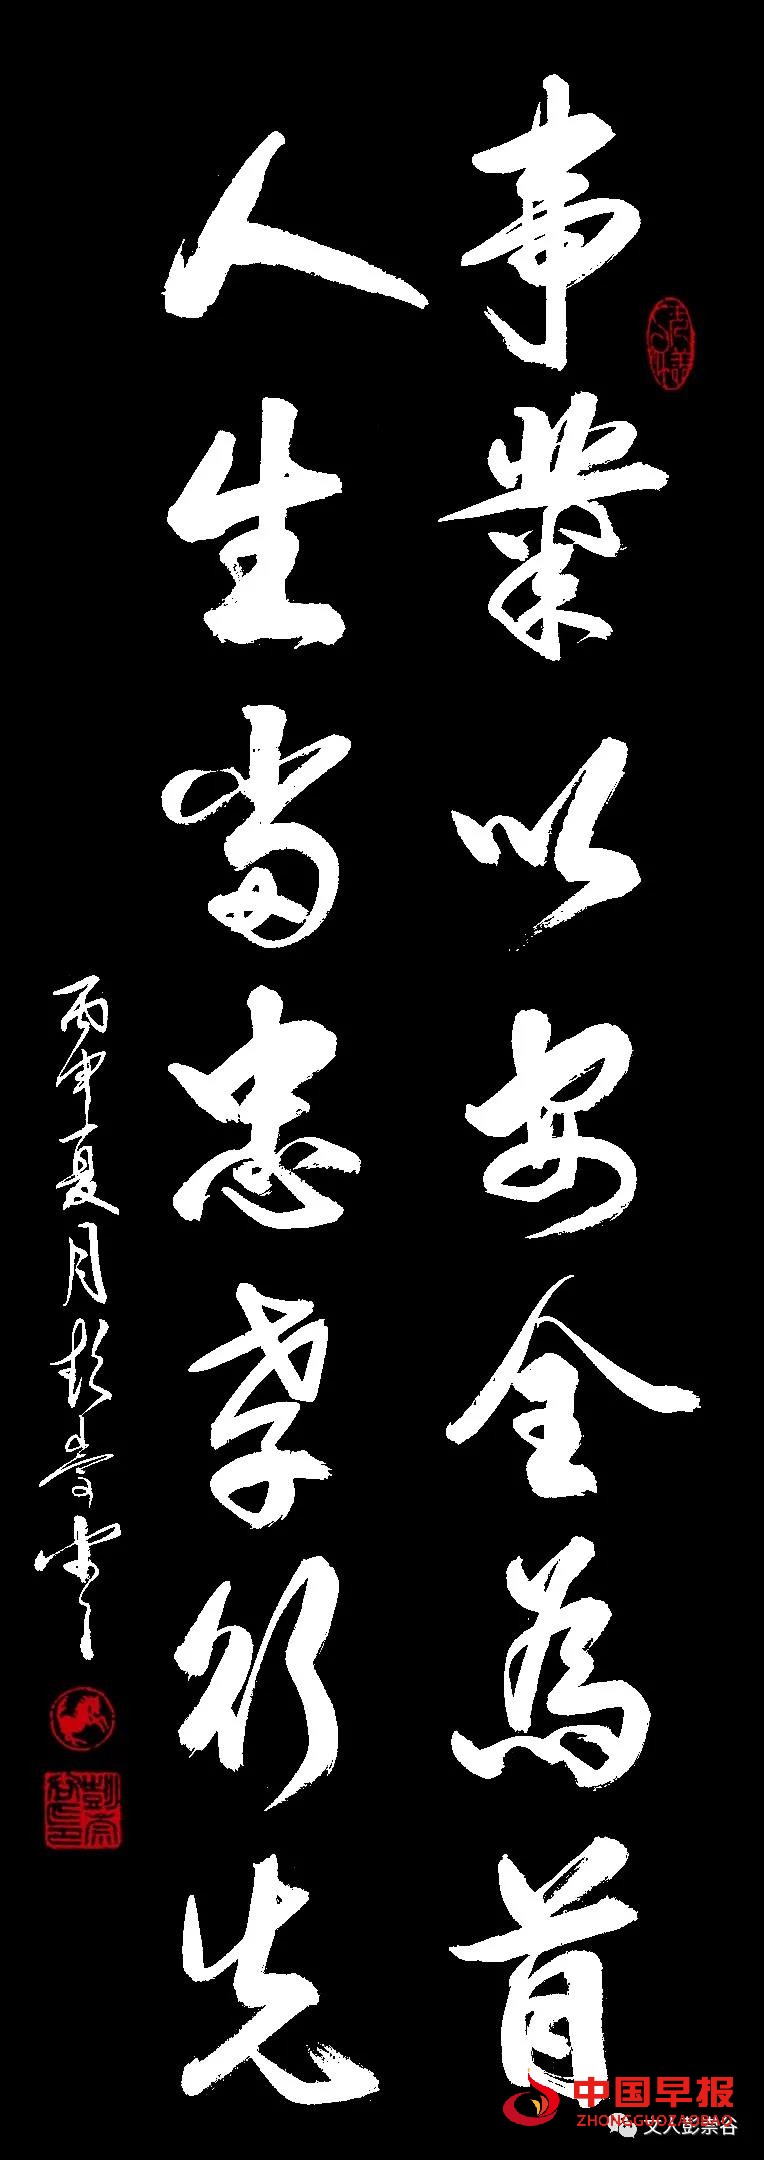 事業以安全為首
人生当忠孝行先
丙申夏月彭崇谷书
中国早报
ZHONGGUOZAOBAO
文人彭崇谷